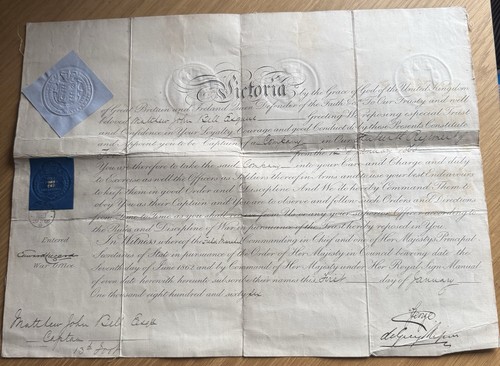 Victoria by the Grace of God of the United Kingdom
of Great Britain and Ireland Queen Defender of the Faith &c. To Our Trusty and well
beloved Matthew John Bell Esquire Greeting We reposing especial Trust
and Confidence in your Loyalty, Courage and good Conduct do by these Presents Constitute
and Appoint you to be Captain in Our
from the
You are therefore to take the said Company into your Care and Charge and duty
to Exercise as well the Officers as Soldiers thereof in Arms and to use your best Endeavours
to keep them in good Order and Discipline And We do hereby Command them to
Obey you as their Captain and You are to observe and follow such Orders and Directions
from time to time as you shall receive from Us or any your according to
the Rules and Discipline of War in pursuance of the Trust hereby reposed in You
In Witness whereof Commanding in Chief and one of Her Majesty's Principal
Secretaries of State in pursuance of the Order of Her Majesty in Council bearing date the
day of June 1862 and by Command of Her Majesty under Her Royal Sign Manual
of even date herewith hereunto subscribe their names this First day of January
One thousand eight hundred and sixty six
Entered
War Office
George
de Grey & Ripon
Matthew John Bell Esqe
Captn
Foot